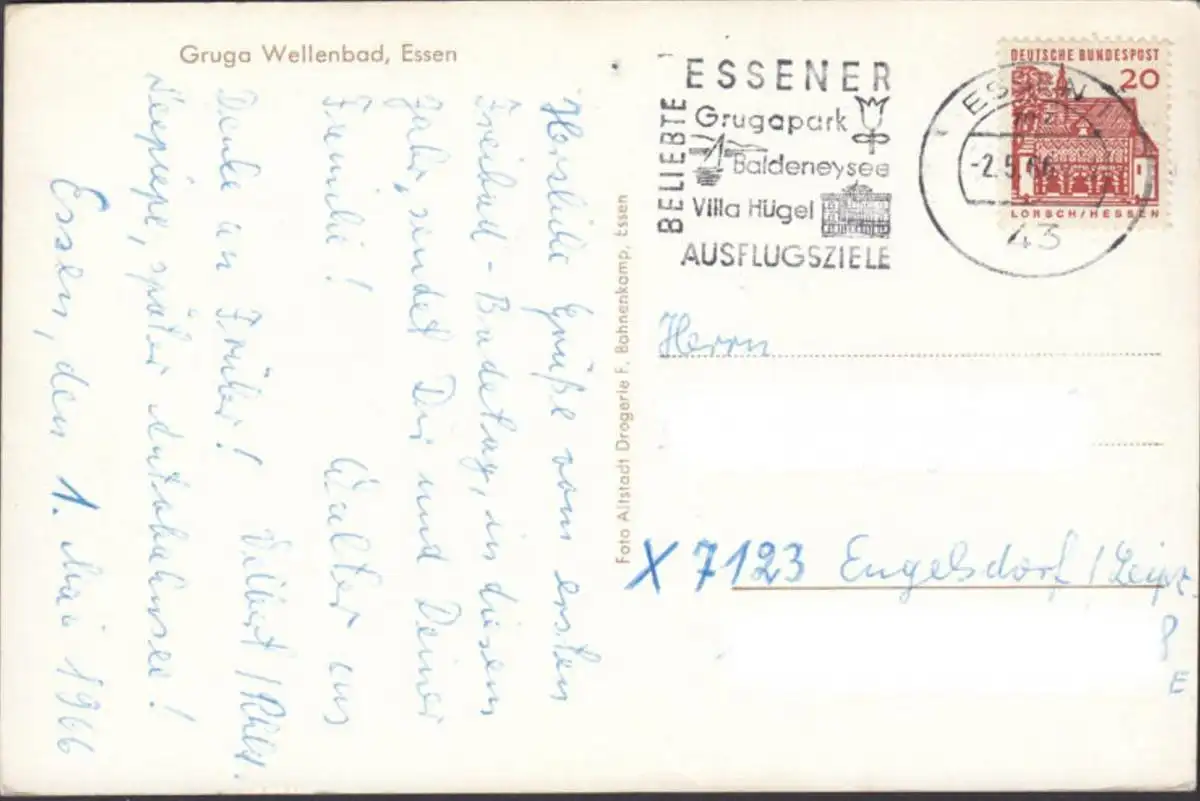 Gruga Wellenbad, Essen
Herzliche Grüße vom ersten
Freibad-Badetag, in diesem
Jahr, sendet Dir und Deiner
Familie! Walter aus
Denke an Früher! Velbert/Rhld.
später Autobahnsee!
Essen, den 1. Mai 1966
Foto Altstadt Drogerie F. Bahnenkamp, Essen
BELIEBTE
ESSENER
Grugapark
Baldeneysee
Villa Hügel
AUSFLUGSZIELE
ESSEN 1
-2.5.66
43
DEUTSCHE BUNDESPOST
20
LORSCH/HESSEN
Herrn
X 7123 Engelsdorf/Leipz.
E